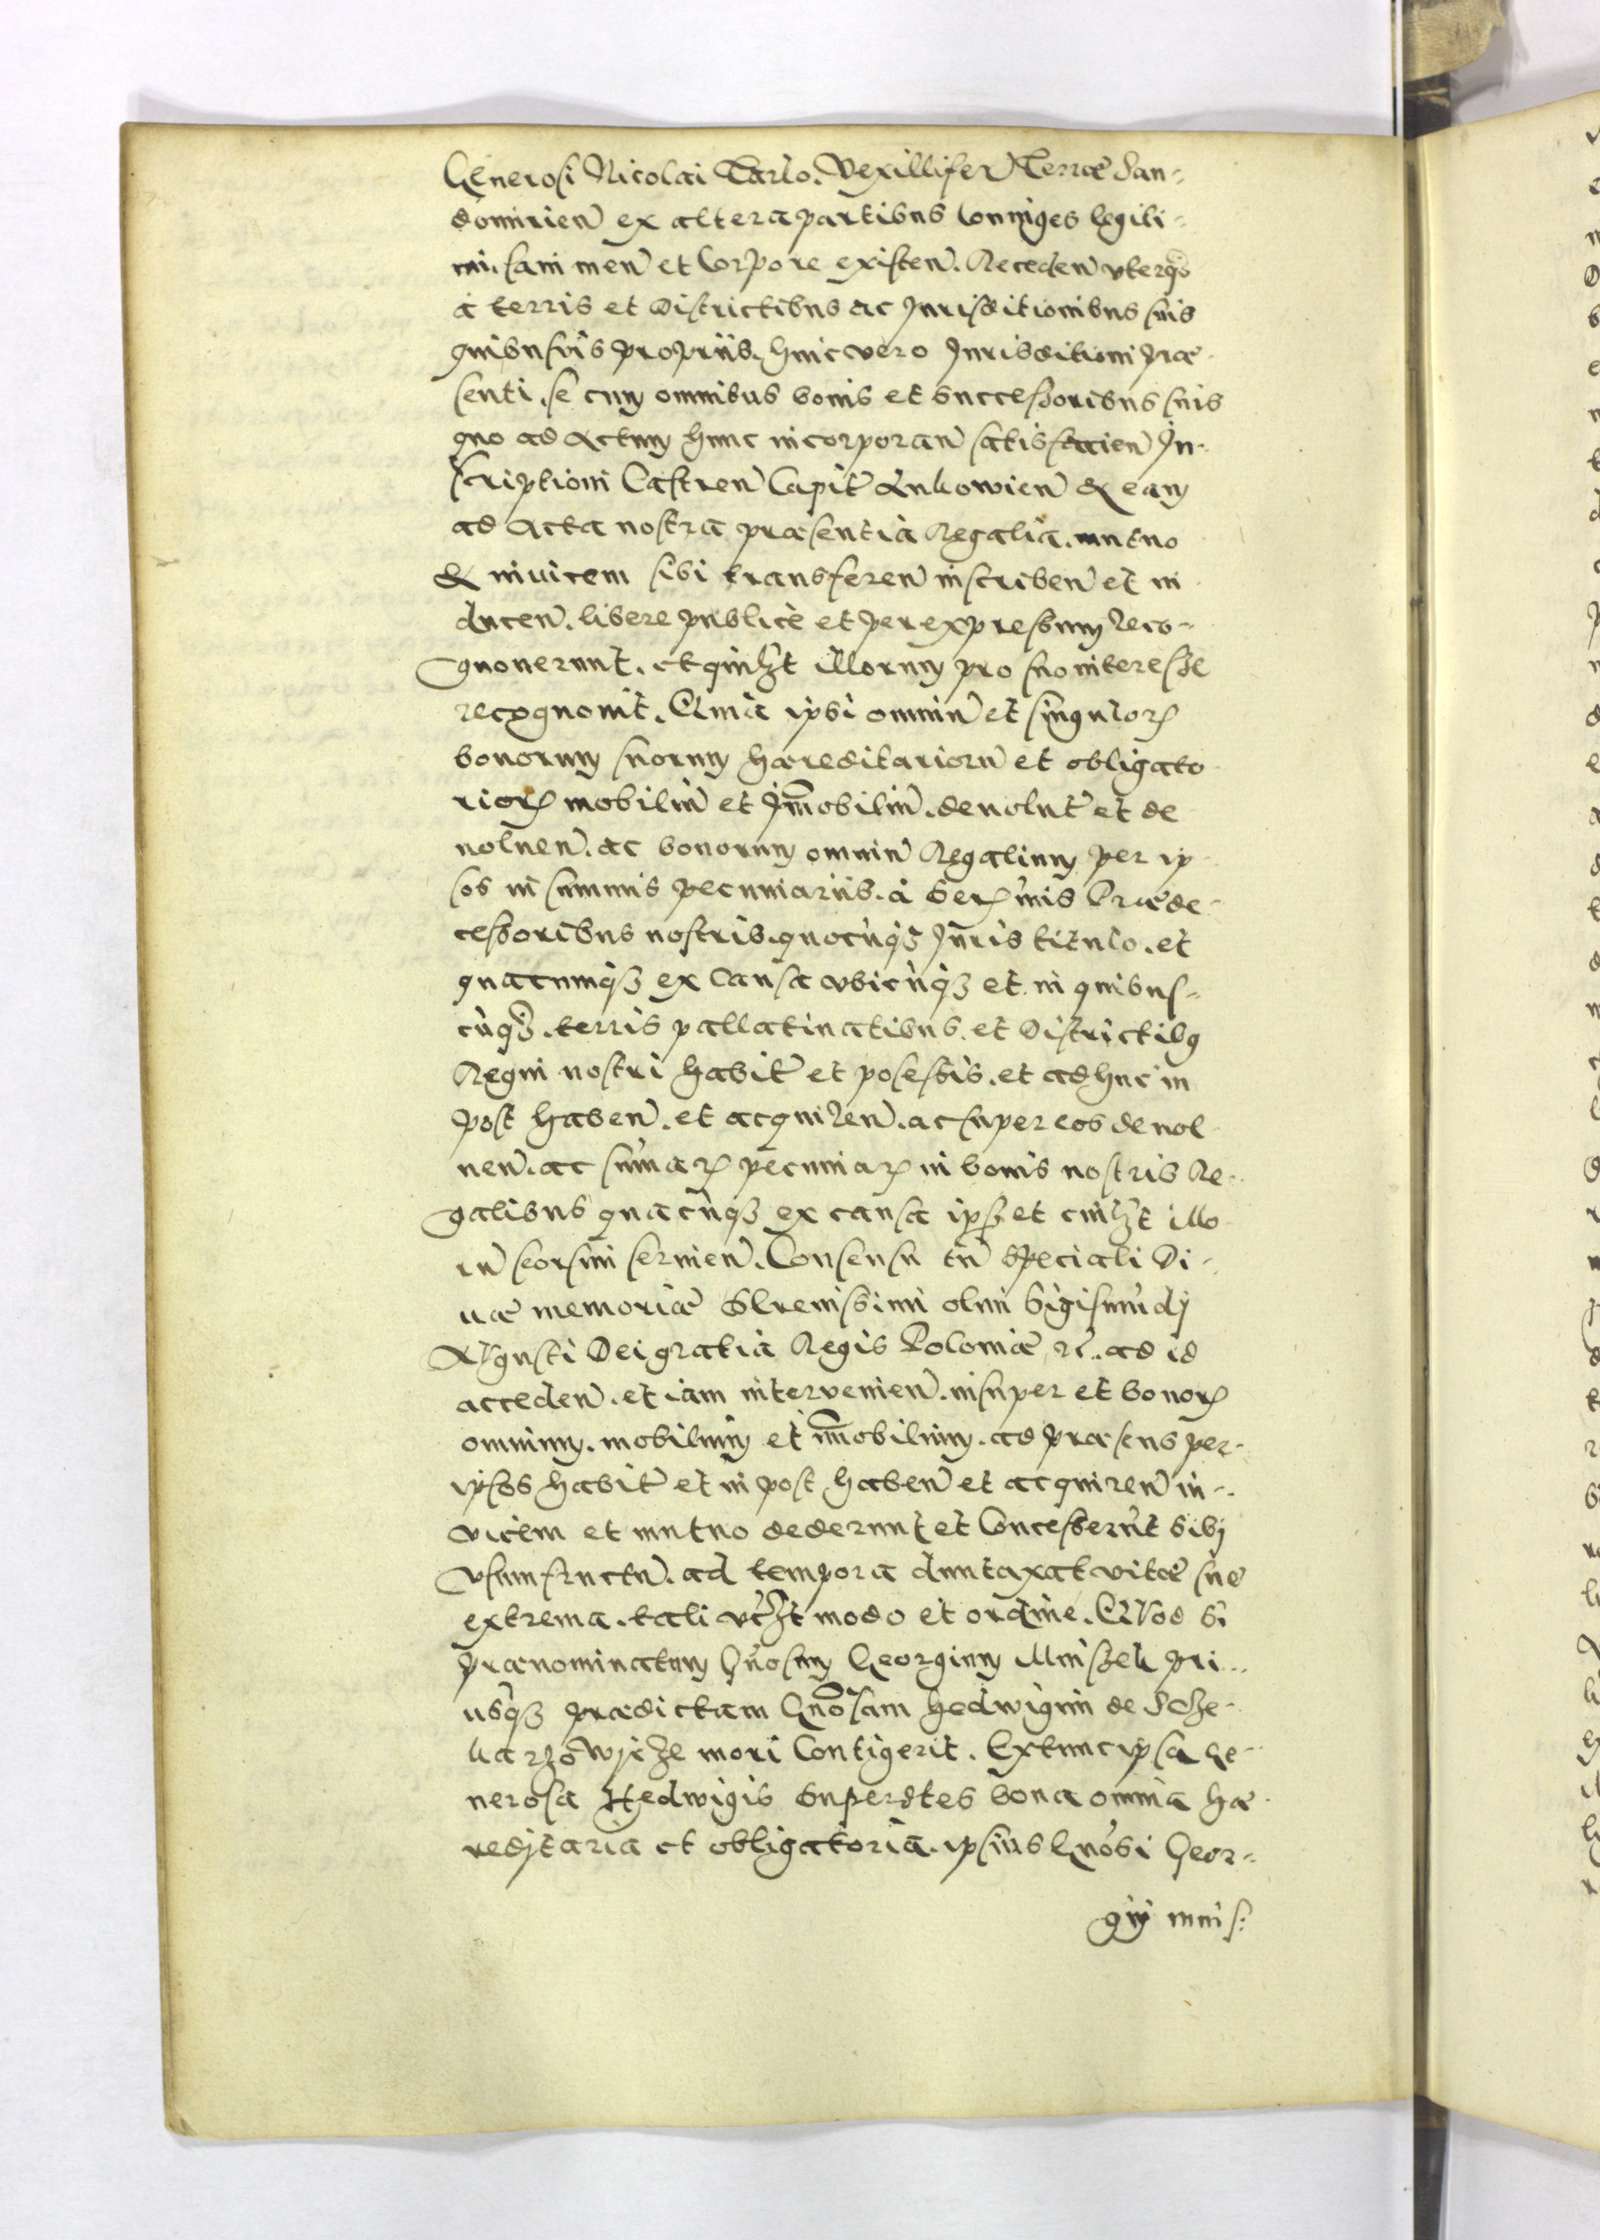 Generosi Nicolai Tarlo. Vexilliferi Terræ San-
domirieñ ex altera partibus Coniuges legiti-
mi. sani meñ et Corpore existeñ. Recedeñ vterqꝫ
a terris et Districtibus ac Jurisditionibus suis
quibusuis proprijs. huic vero Jurisditioni præ
senti. se cum omnibus bonis et successoribus suis
quo ad Actum hunc incorporañ satisfacieñ In-
scriptioni Castreñ Capiť Lukowieñ & eam
ad Acta nostra præsentia Regalia. mutuo
& inuicem sibi transfereñ inscribeñ et in
duceñ. libere publicè et per expressum reco-
gnouerunt. et quilꝫt illorum pro suo interesse
recognouit. Quia ipsi omniũ et singuloꝝ
bonorum suorum hæreditariorũ et obligato
rioꝝ mobiliũ et Im̃obiliũ. deuoluť et de
uolueñ. ac bonorum omniũ Regalium per ip
sos in summis pecuniarijs. à Sereꝝmis Præde-
cessoribus nostris. quocũqꝫ Juris titulo. et
quacumqꝫ ex Causa vbicũqꝫ et in quibus-
cũqꝫ. terris pallatinatibus. et Districtibꝰ
Regni nostri habiť et possessis. et adhuc in
post habeñ. et acquireñ. ac super eos deuol
ueñ. ac sum̃aꝝ pecuniaꝝ in bonis nostris Re-
galibus quacũqꝫ ex causa ipsꝫ et cuilꝫt illo
rũ seorsim seruieñ. Consensu tñ speciali Di-
uæ memoriæ Serenissimi olim Sigismũdj
Augusti Dei gratia Regis Poloniæ ꝛc. ad id
accedeñ. et iam interuenieñ. insuper et bonoꝝ
omnium. mobilium et im̃obilium. ad præsens per-
ipsos habiť et in post habeñ et acquireñ in-
vicem et mutuo dederunt et Concesserũt sibj
vsumfructũ. ad tempora duntaxat vitæ suæ
extrema. tali vꝫt modo et ordine. Quod si
prænominatum Gñosum Georgium Mniszek pri-
usqꝫ prædictam Gñosam Hedwigim de Scze-
karzowycze mori Contigerit. Extunc ipsa Ge-
nerosa Hedwigis superstes bona omnia hæ
redjtaria et obligatoria. ipsius Gñosi Geor-
gij mnis: